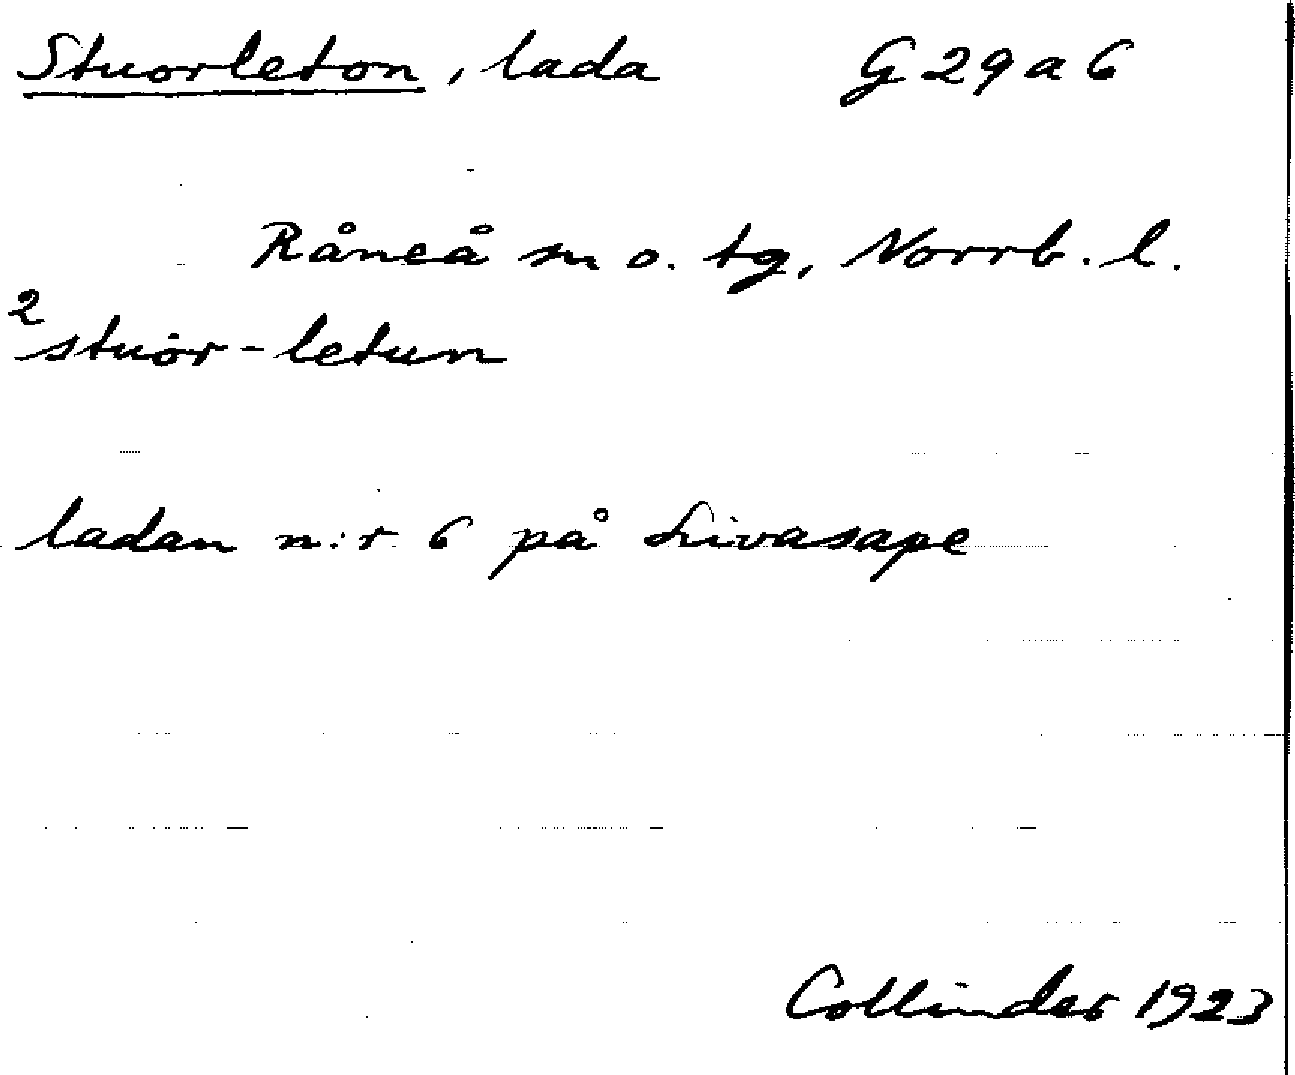 Stuorleton, lada G 29 a 6
Råneå sn o. tg, Norrb. l.
2stuor-letun
ladan n:r 6 på Livasape
Collinder 1923